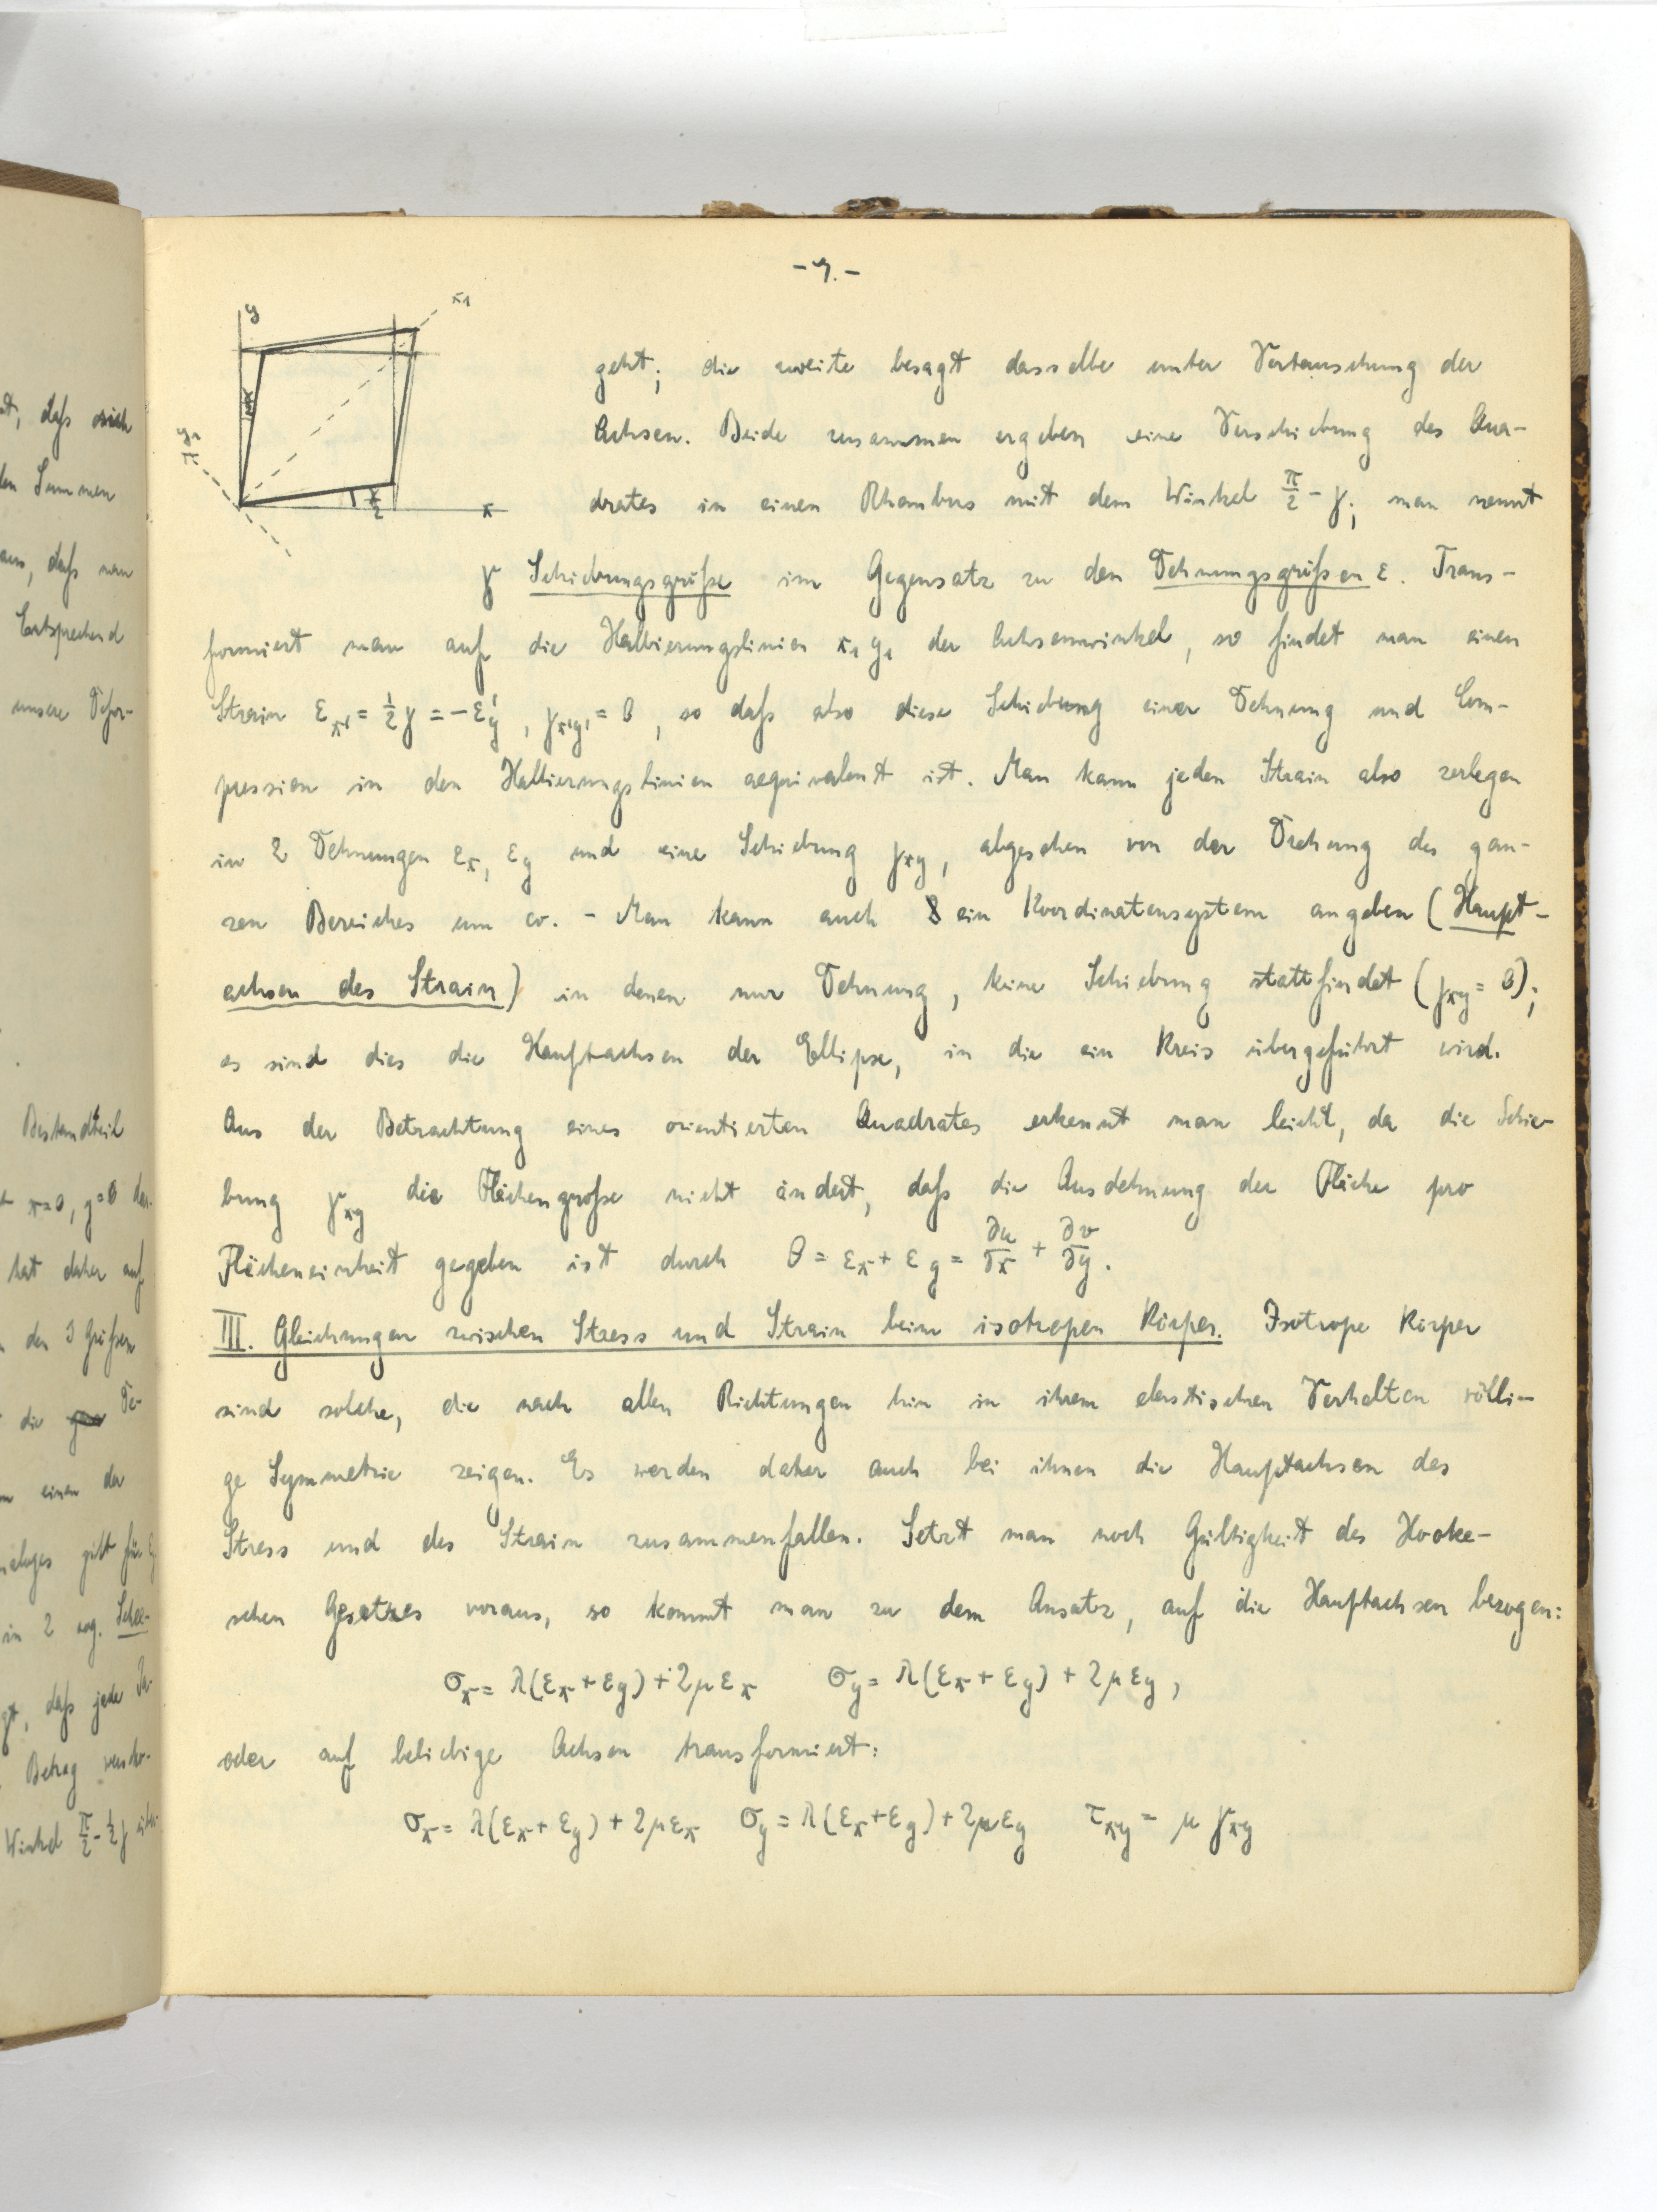 -7.-
y
x₁
y₁
γ/2
γ/2
x
geht; die zweite besagt dasselbe unter Vertauschung der
Achsen. Beide zusammen ergeben eine Verschiebung des Qua-
drates in einen Rhombus mit dem Winkel π/2 - γ; man nennt
γ Schiebungsgröße im Gegensatz zu den Dehnungsgrößen ε. Trans-
formiert man auf die Halbierungslinien x₁ y₁ der Achsenwinkel, so findet man einen
Strain εx' = ½γ = -εy', γx'y' = 0, so daß also diese Schiebung einer Dehnung und Com-
pression in den Halbierungslinien aequivalent ist. Man kann jeden Strain also zerlegen
in 2 Dehnungen εx, εy und eine Schiebung γxy, abgesehen von der Drehung des gan-
zen Bereiches um ω. - Man kann auch ein Koordinatensystem angeben (Haupt-
achsen des Strain) in denen nur Dehnung, keine Schiebung stattfindet (γxy = 0);
es sind dies die Hauptachsen der Ellipse, in die ein Kreis übergeführt wird.
Aus der Betrachtung eines orientierten Quadrates erkennt man leicht, da die Schie-
bung γxy die Flächengröße nicht ändert, daß die Ausdehnung der Fläche pro
Flächeneinheit gegeben ist durch θ = εx + εy = ∂u/∂x + ∂v/∂y.
III. Gleichungen zwischen Stress und Strain beim isotropen Körper. Isotrope Körper
sind solche, die nach allen Richtungen hin in ihrem elastischen Verhalten völli-
ge Symmetrie zeigen. Es werden daher auch bei ihnen die Hauptachsen des
Stress und des Strain zusammenfallen. Setzt man noch Gültigkeit des Hooke-
schen Gesetzes voraus, so kommt man zu dem Ansatz, auf die Hauptachsen bezogen:
σx = λ(εx + εy) + 2μεx σy = λ(εx + εy) + 2μεy,
oder auf beliebige Achsen transformiert:
σx = λ(εx + εy) + 2μεx σy = λ(εx + εy) + 2μεy τxy = μ γxy